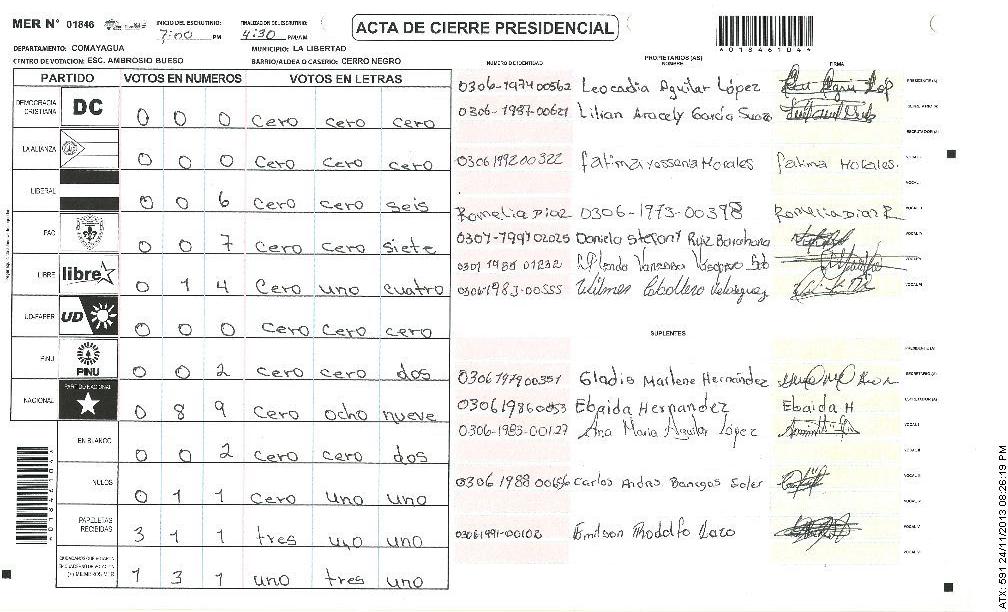 MER N° 01846 INICIO DEL ESCRUTINIO: 7:00 PM FINALIZACION DEL ESCRUTINIO: 4:30 PM/AM ACTA DE CIERRE PRESIDENCIAL
DEPARTAMENTO: COMAYAGUA MUNICIPIO: LA LIBERTAD
CENTRO DE VOTACION: ESC. AMBROSIO BUESO BARRIO/ALDEA O CASERIO: CERRO NEGRO
PARTIDO VOTOS EN NUMEROS VOTOS EN LETRAS
DEMOCRACIA CRISTIANA DC 0 0 0 cero cero cero
LA ALIANZA 0 0 0 cero cero cero
LIBERAL 0 0 6 cero cero seis
PAC 0 0 7 cero cero siete
LIBRE libre 0 1 4 cero uno cuatro
UD-FAPER UD 0 0 0 cero cero cero
PINU PINU 0 0 2 cero cero dos
NACIONAL PARTIDO NACIONAL 0 8 9 cero ocho nueve
EN BLANCO 0 0 2 cero cero dos
NULOS 0 1 1 cero uno uno
PAPELETAS RECIBIDAS 3 1 1 tres uno uno
(+) MIEMBROS MER 1 3 1 uno tres uno
PROPIETARIOS (AS)
NUMERO DE IDENTIDAD NOMBRE FIRMA
0306-1974 00562 Leocadia Aguilar López
0306-1987-00621 Lilian Aracely García Suazo
0306 1992 00322 fatima yossenia Morales fatima Morales.
Romelia Diaz 0306-1973-00398 Romelia Diaz R
Daniela Stefany Ruiz Barahona
0306 1983-00555 Wilmer Caballero Velasquez
SUPLENTES
0306 1979 00351 Gladis Marlene Hernández
Ebaida Hernandez Ebaida H
0306-1983-00127 Ana Maria Aguilar López
0306 1988 Carlos Banegas Soler
0306 1991-00102 Rodolfo Lazo
ATX: 591 24/11/2013 08:26:19 PM